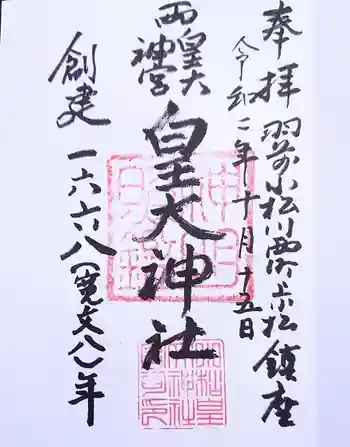 奉拝 羽前小松川西町上小松 鎮座
令和二年十月十五日
両皇大
神宮
皇大神社
創建 一六六八(寛文八)年